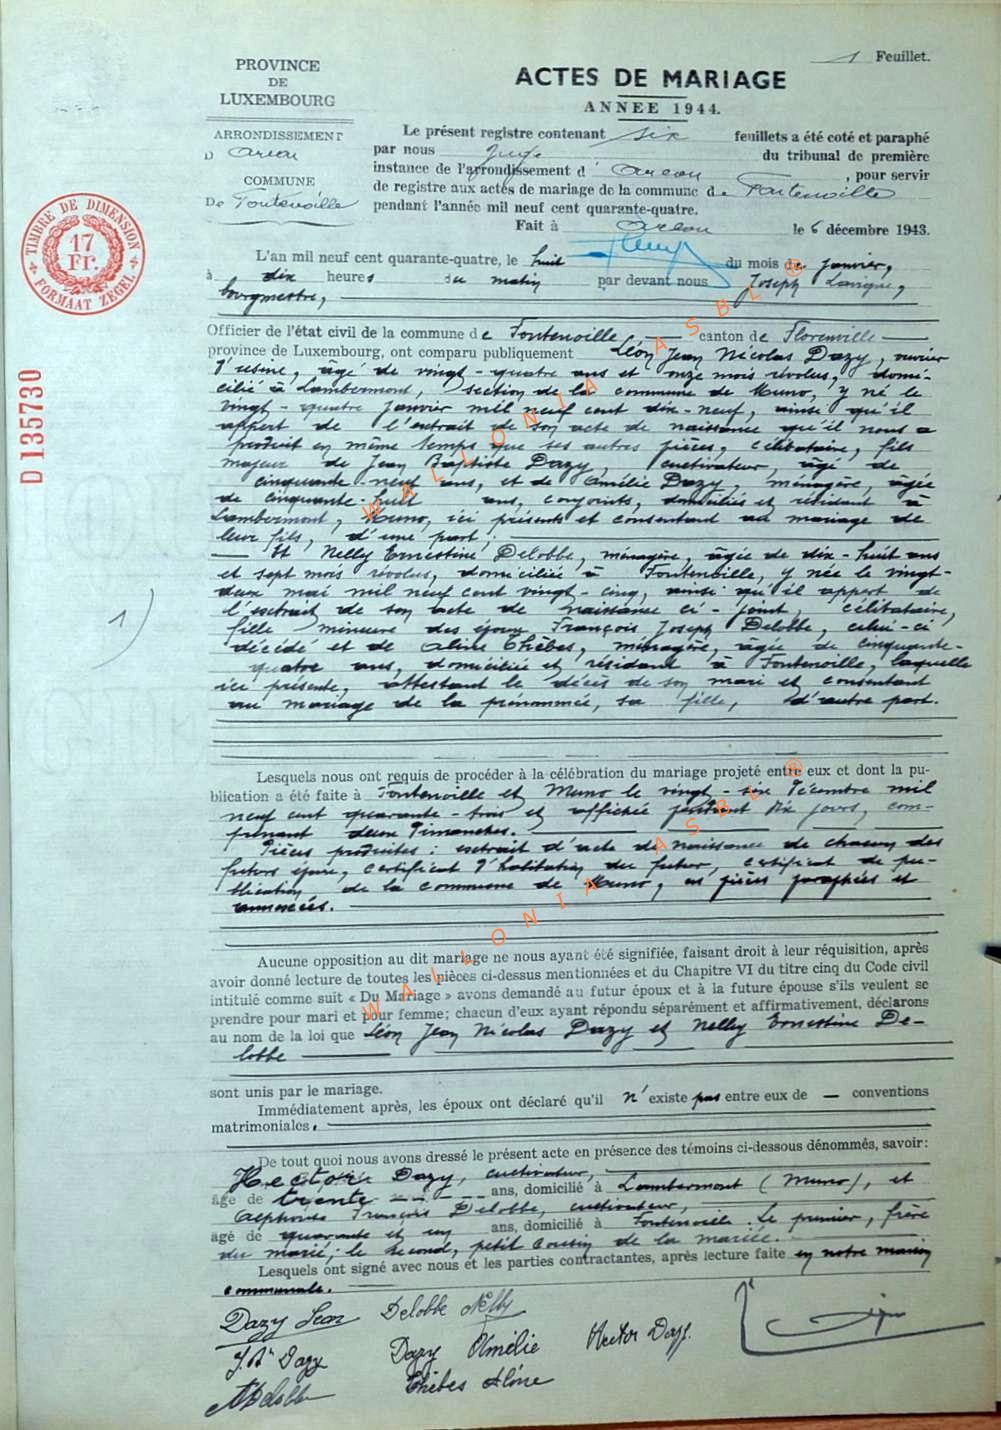 1 Feuillet.
PROVINCE
DE
LUXEMBOURG
ARRONDISSEMENT
D Arlon
COMMUNE
De Fontenoille
ACTES DE MARIAGE
ANNEE 1944.
Le présent registre contenant six feuillets a été coté et paraphé
par nous Juge du tribunal de première
instance de l'arrondissement d' Arlon, pour servir
de registre aux actes de mariage de la commune de Fontenoille
pendant l'année mil neuf cent quarante-quatre.
Fait à Arlon le 6 décembre 1943.
TIMBRE DE DIMENSION
17
Fr.
FORMAAT ZEGEL
D135730
1)
L'an mil neuf cent quarante-quatre, le huit du mois de janvier,
à dix heures du matin par devant nous Joseph Lavigne,
bourgmestre,
Officier de l'état civil de la commune de Fontenoille canton de Florenville
province de Luxembourg, ont comparu publiquement Léon Jean Nicolas Dazy, ouvrier
d'usine, âgé de vingt-quatre ans et onze mois révolus, domi-
cilié à Lambermont, section de la commune de Muno, y né le
vingt-quatre janvier mil neuf cent dix-neuf, ainsi qu'il
appert de l'extrait de son acte de naissance qu'il nous a
produit en même temps que ses autres pièces, célibataire, fils
majeur de Jean Baptiste Dazy, cultivateur, âgé de
cinquante-neuf ans, et de Amélie Dazy, ménagère, âgée
de cinquante-huit ans, conjoints, domiciliés et résidant à
Lambermont, Muno, ici présents et consentant au mariage de
leur fils, d'une part;
Et Nelly Ernestine Delobbe, ménagère, âgée de dix-huit ans
et sept mois révolus, domiciliée à Fontenoille, y née le vingt-
deux mai mil neuf cent vingt-cinq, ainsi qu'il appert de
l'extrait de son acte de naissance ci-joint, célibataire,
fille mineure des époux François Joseph Delobbe, celui-ci
décédé et de Aline Thèbes, ménagère, âgée de cinquante-
quatre ans, domiciliée et résidant à Fontenoille, laquelle
ici présente, attestant le décès de son mari et consentant
au mariage de la prénommée, sa fille, d'autre part.
Lesquels nous ont requis de procéder à la célébration du mariage projeté entre eux et dont la pu-
blication a été faite à Fontenoille et Muno le vingt-six décembre mil
neuf cent quarante-trois et affichée pendant dix jours, com-
prenant deux dimanches.
Pièces produites: extrait d'acte de naissance de chacun des
futurs époux, certificat d'habitation du futur, certificat de pu-
blication de la commune de Muno, les pièces paraphées et
annexées.
Aucune opposition au dit mariage ne nous ayant été signifiée, faisant droit à leur réquisition, après
avoir donné lecture de toutes les pièces ci-dessus mentionnées et du Chapitre VI du titre cinq du Code civil
intitulé comme suit « Du Mariage » avons demandé au futur époux et à la future épouse s'ils veulent se
prendre pour mari et pour femme; chacun d'eux ayant répondu séparément et affirmativement, déclarons
au nom de la loi que Léon Jean Nicolas Dazy et Nelly Ernestine De-
lobbe
sont unis par le mariage.
Immédiatement après, les époux ont déclaré qu'il n'existe pas entre eux de — conventions
matrimoniales.
De tout quoi nous avons dressé le présent acte en présence des témoins ci-dessous dénommés, savoir:
Hector Dazy, cultivateur,
âgé de trente ans, domicilié à Lambermont (Muno), et
Alphonse François Delobbe, cultivateur,
âgé de quarante et un ans, domicilié à Fontenoille. Le premier, frère
du marié; le second, petit cousin de la mariée.
Lesquels ont signé avec nous et les parties contractantes, après lecture faite en notre maison
communale.
Dazy Leon Delobbe Nelly
J. Bte Dazy Dazy Amélie Hector Dazy.
ADelobbe Thèbes Aline
WALLONIA ASBL ®
WALLONIA ASBL ®